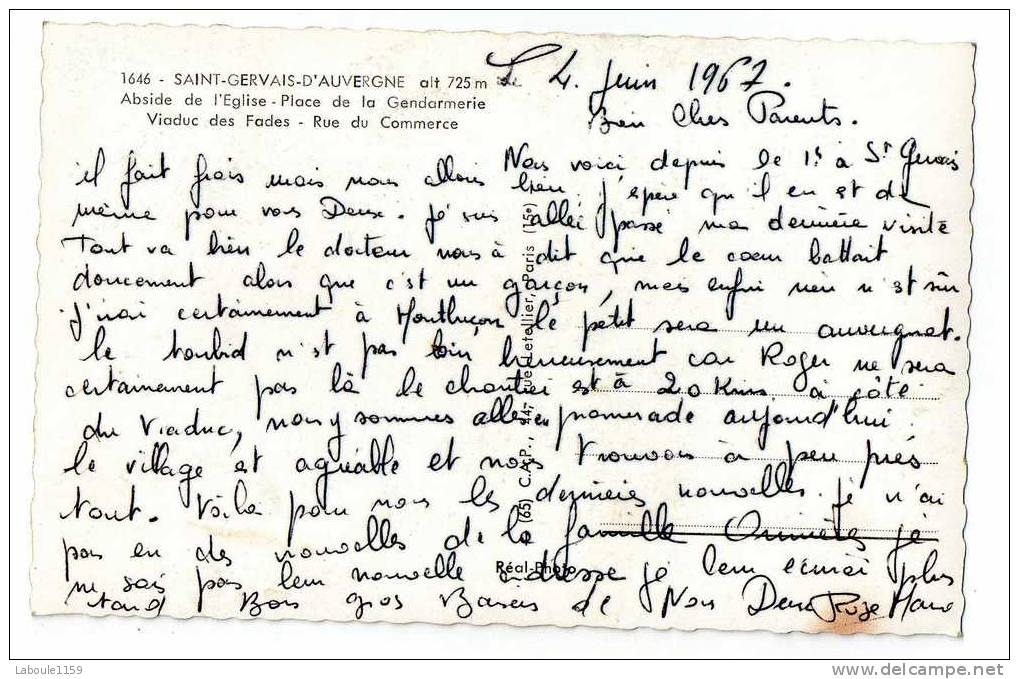 1646 - SAINT-GERVAIS-D'AUVERGNE alt 725 m
Abside de l'Eglise - Place de la Gendarmerie
Viaduc des Fades - Rue du Commerce
Le 4. Juin 1967.
Bien Chers Parents.
Nous voici depuis le 1er à St Gervais
il fait frais mais nous allons bien. J'espère qu'il en est de
même pour vous Deux. Je suis allée passé ma dernière visite
Tout va bien le docteur nous à dit que le coeur battait
doucement alors que c'est un garçon, mais enfin rien n'est sûr
J'irai certainement à Montluçon le petit sera un auvergnat.
le toubid n'est pas loin heureusement car Roger ne sera
certainement pas là le chantier est à 20 Kms à côté
du Viaduc, nous y sommes allés en promenade aujourd'hui.
le village est agréable et nous trouvons à peu près
tout. Voilà pour nous les dernières nouvelles. Je n'ai
pas eu des nouvelles de la famille je
ne sais pas leur nouvelle adresse je leur écrirai plus
tard Bons gros Baisers de Nous Deux
(65) C.A.P., 44, rue Letellier, Paris (15e)
Réal-Photo
Laboule1159
www.delcampe.net